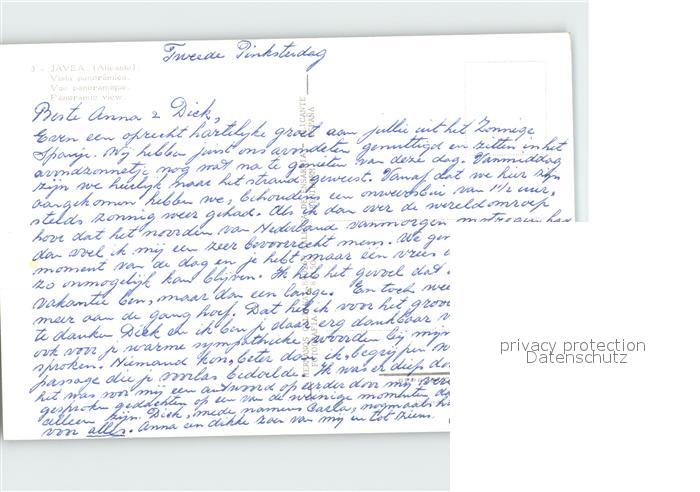 Tweede Pinksterdag
3 - JAVEA (Alicante).
Vista panorámica.
Vue panoramique.
Panoramic view.
Beste Anna & Dick,
Even een oprecht hartelijke groet aan jullie uit het zonnige
Spanje. Wij hebben juist ons avondeten genuttigd en zitten in het
avondzonnetje nog wat na te genieten van deze dag. Vanmiddag
zijn we heerlijk naar het strand geweest. Vanaf dat we hier zijn
aangekomen hebben we, behoudens een onweersbui van 1½ uur,
steeds zonnig weer gehad. Als ik dan over de wereldomroep
hoor dat het noorden van Nederland vanmorgen
dan voel ik mij een zeer bevoorrecht mens. We
moment van de dag en je hebt maar één vrees
zo onmogelijk kan blijven. Ik heb het gevoel dat
vakantie ben, maar dan een lange. En toch
meer aan de gang hoef. Dat heb ik voor het
te danken Dick en ik ben je daar erg dankbaar
ook voor je warme sympathieke woorden bij mijn
spreken. Niemand kon, beter dan ik, begrijpen
passage die je voorlas bedoelde. Ik was er diep
het was voor mij een antwoord op eerder door mij
gesproken gedachten op een van de weinige momenten
alleen zijn. Dick, mede namens Carla, nogmaals
voor alles. Anna een dikke zoen van mij en tot ziens.
privacy protection
Datenschutz